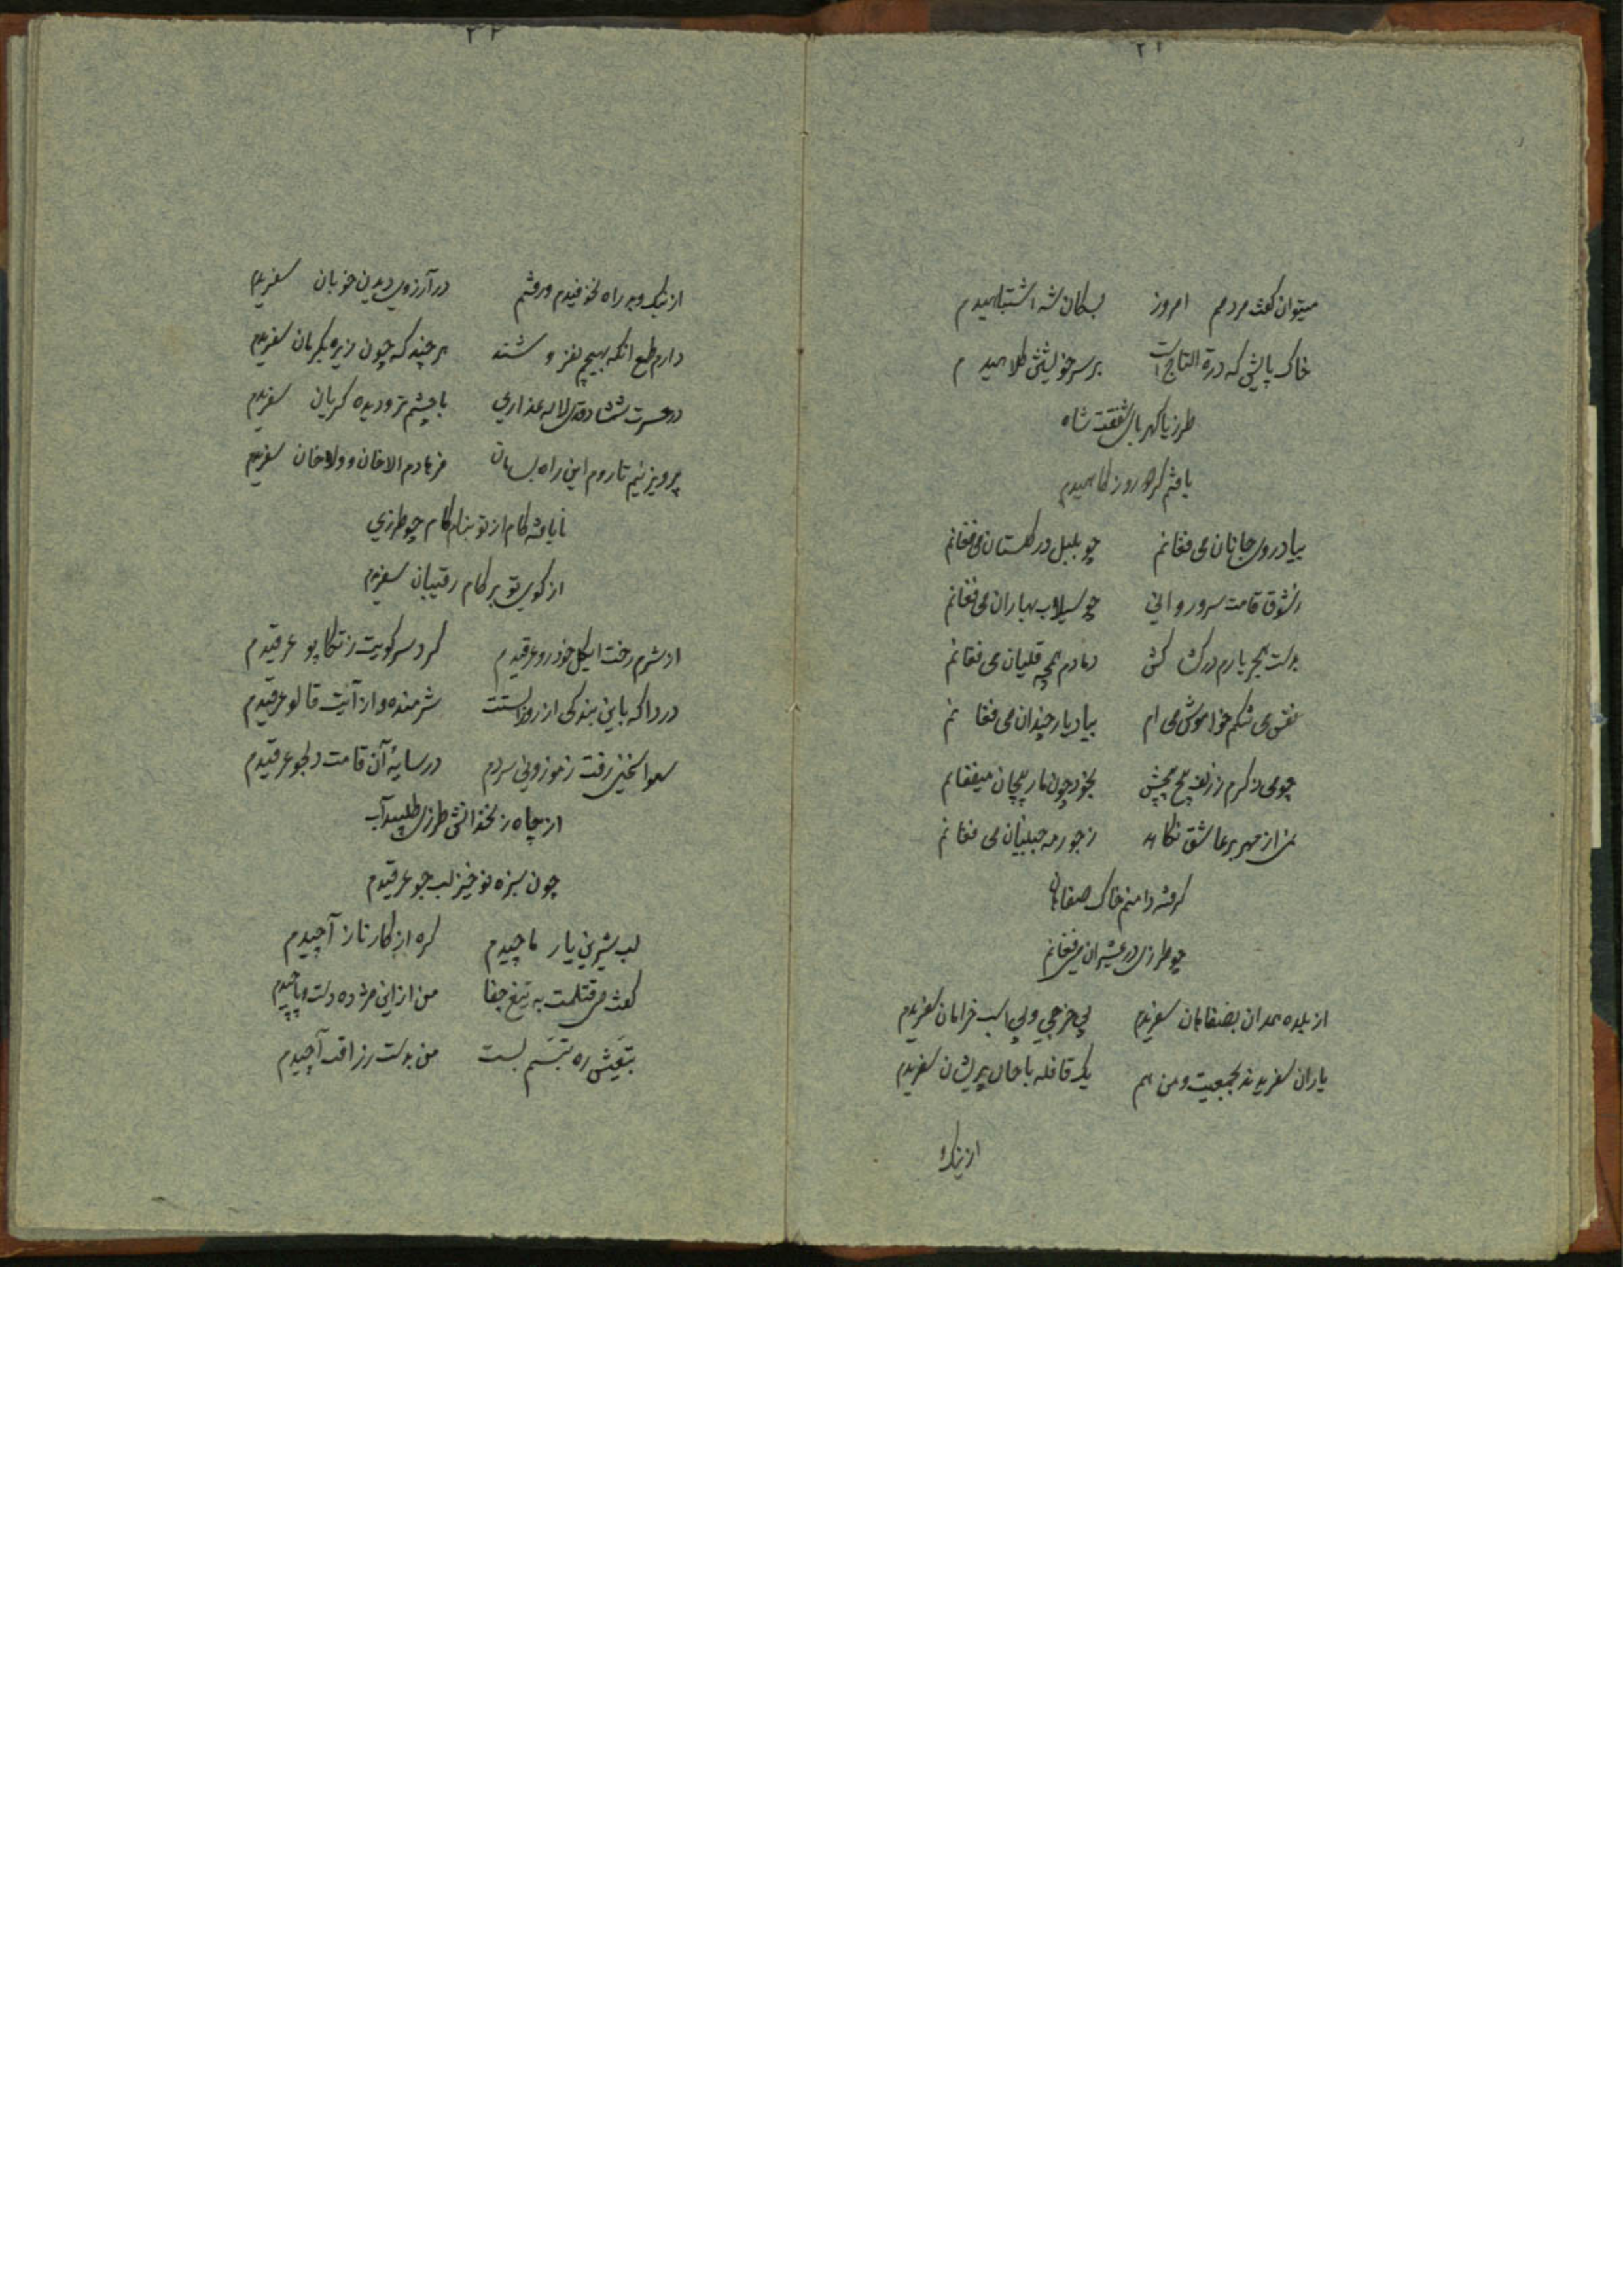 ۲۱
میتوان گفت مردمم امروز بسکان شه اشتباهیدم
خاک پایش که درة التاج است بر سر خویشتن کلاهیدم
طرزیا کهربای شفقت شاه
یافتم گر چه روز کاهیدم
بیاد روی جانان می فغانم چو بلبل در گلستان می فغانم
زشوق قامت سرو روانی چو سیلاب بهاران می فغانم
بدست هجر یارم در کش کش دمادم همچه قلیان می فغانم
نفس می شکم خواموش می ام بیاد یار چندان می فغانم
چو می ذکرم ز زلف پیچ پیچش بخود چون مار پیچان میفغانم
ز جور مه جبینان می فغانم
گرفته دامنم خاک صفاهان
چو طرزی در عشیران می فغانم
از بلده همدان بصفاهان سفریدم بی خرجی و بی اسب خرامان سفریدم
یاران سفریدند بجمعیت و من هم یک قافله با حال پریشان سفریدم
از نیک و
۲۲
از نیک و بد راه نخوفیدم و رفتم در آرزوی دیدن خوبان سفریدم
دارم طمع انکه بهیچم نفروشند هر چند که چون زیره بکرمان سفریدم
در حسرت شمشاد قدی لاله عذاری با چشم تر و دیده گریان سفریدم
پرویز نیم تا روم این راه بسامان فرهادم الاخان و ولاخان سفریدم
نایافته کام از تو بناکام چو طرزی
از کوی تو بر کام رقیبان سفریدم
از شرم رخت ایگل خودرو عرقیدم گرد سر کویت ز تکاپو عرقیدم
دردا که باین بندگی از روز الست شرمنده و از آیت قالو عرقیدم
سهوا سخنی رفت ز موزونی سروم در سایۀ آن قامت دلجو عرقیدم
از چاه زنخدانش طرزی طلبید آب
چون سبزه نوخیز لب جو عرقیدم
لب شیرین یار ماچیدم گره از کار ناز آچیدم
گفت می قتلمت به تیغ جفا من از این مژده دست و پاچیدم
بتعیش ره تبسم بست من بدست رزاقت آچیدم